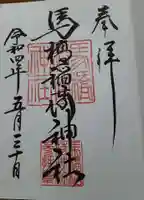 奉拝
馬橋稲荷神社
令和四年五月三十日